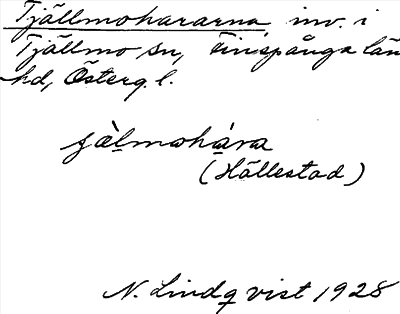 Tjällmohararna inv. i
Tjällmo sn, Finspånga län
hd, Österg. l.
jàlmohára
(Hällestad)
N. Lindqvist 1928